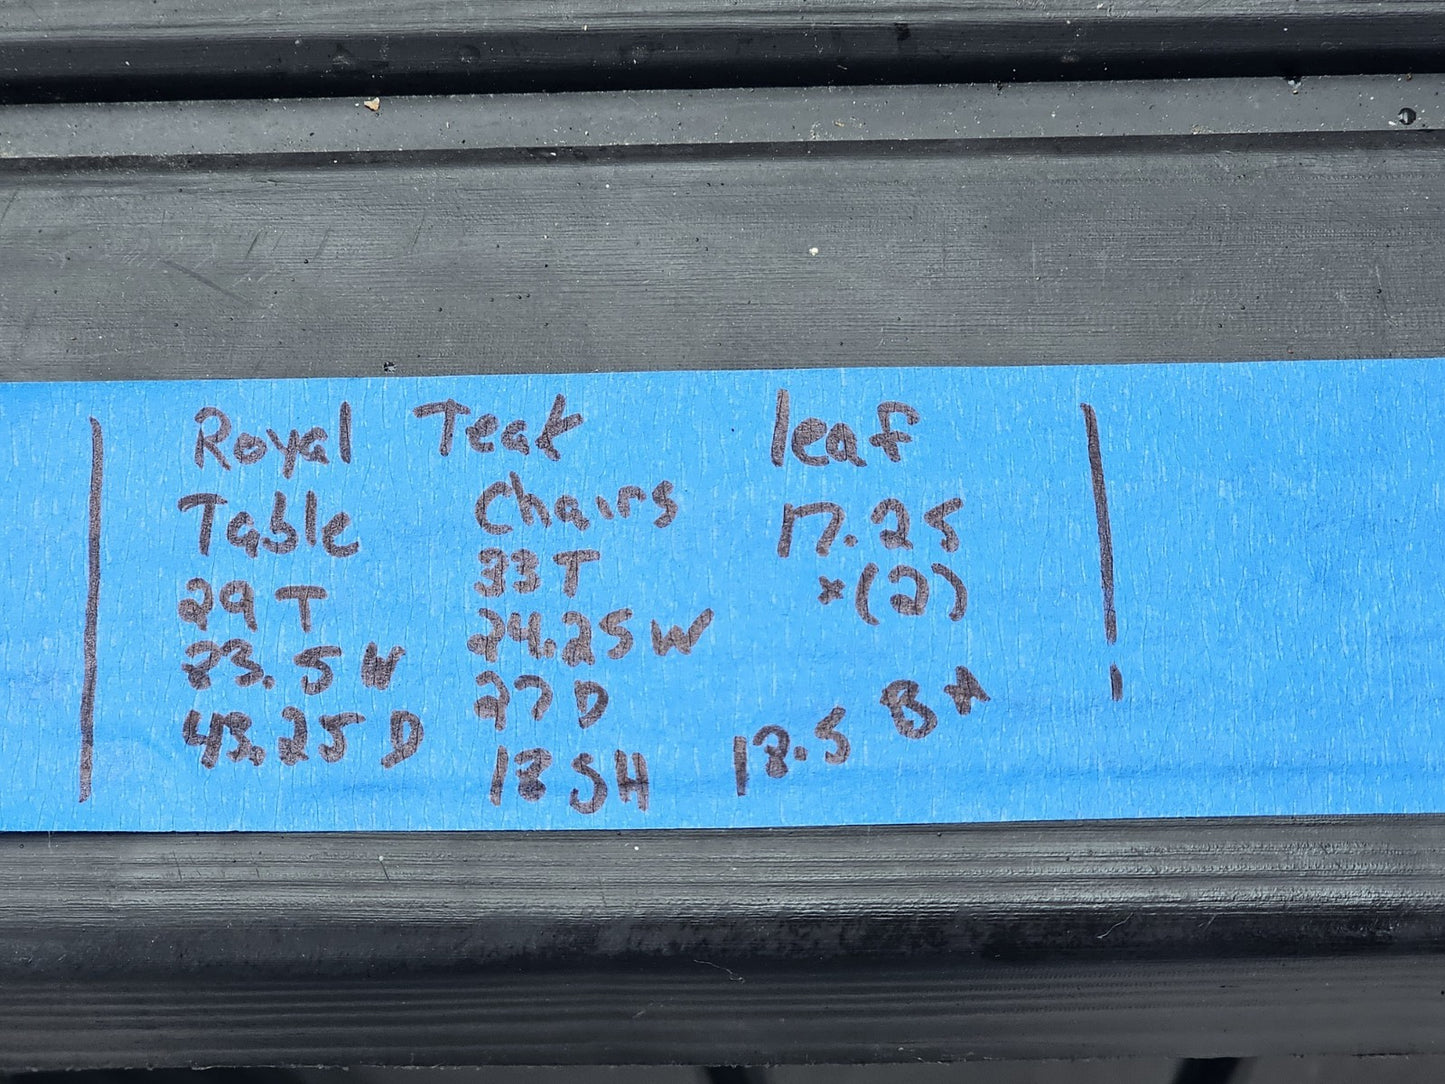 Royal Teak leaf
Table Chairs 17.25
29 T 33 T x(2)
23.5 W 24.25 W
43.25 D 27 D
18 SH 18.5 BH